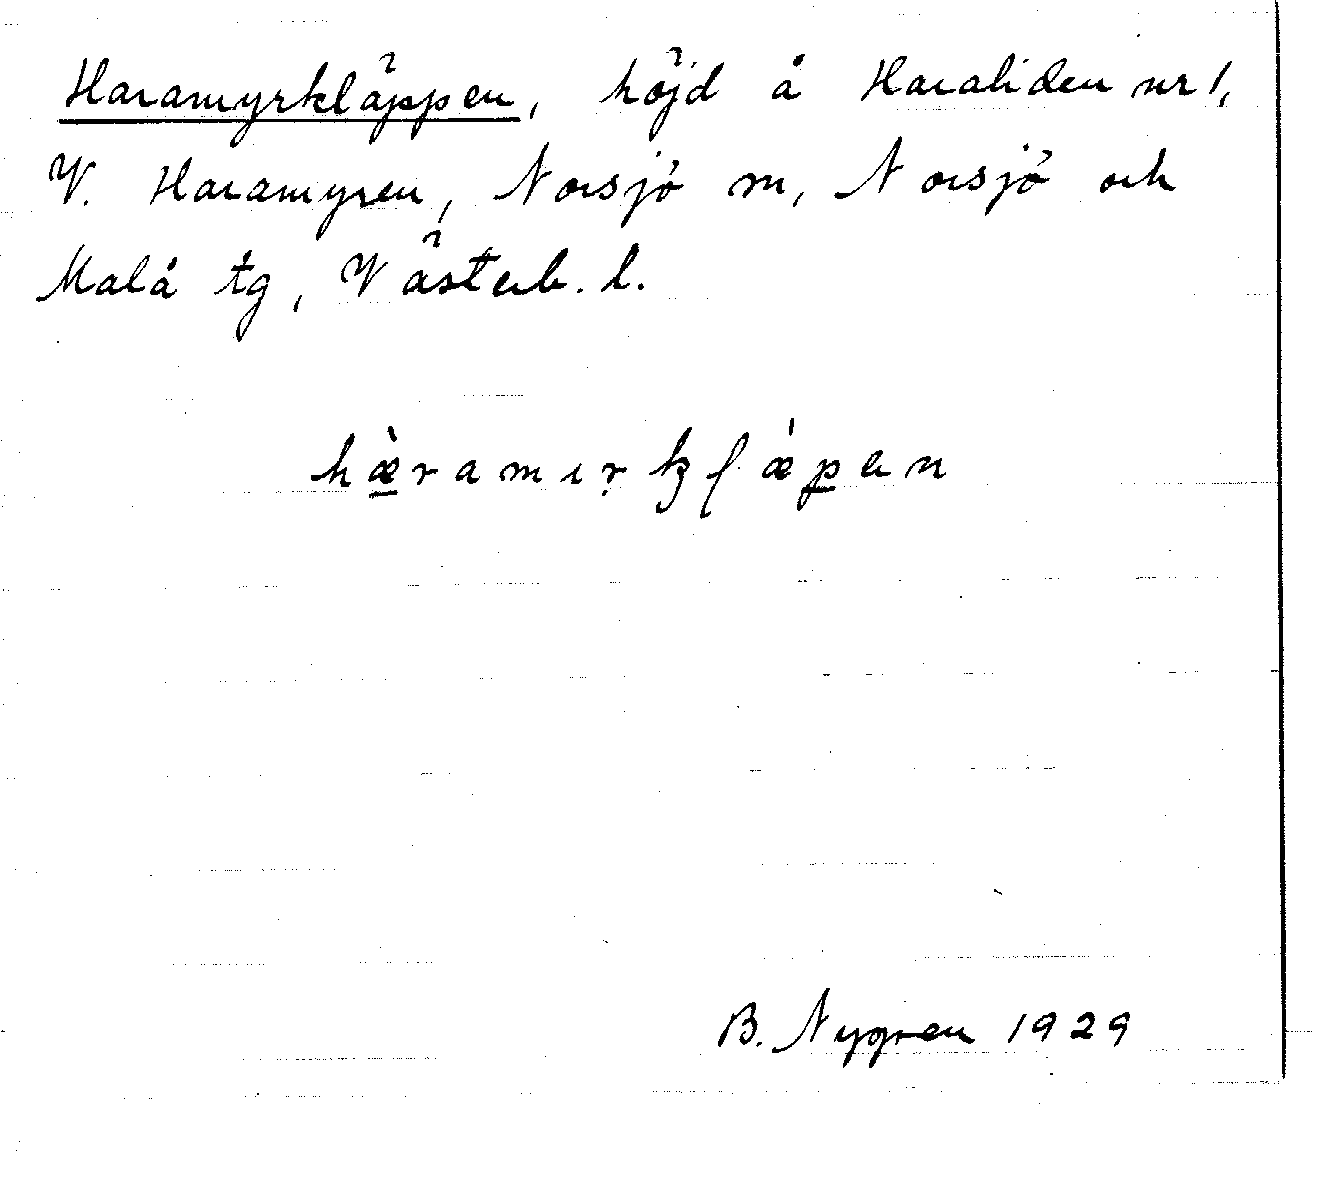 Haramyrkläppen, höjd å Haraliden nr 1,
V. Haramyren, Norsjö sn, Norsjö och
Malå tg, Västerb. l.
hæ̀ramırklǽpen
B. Nygren 1929